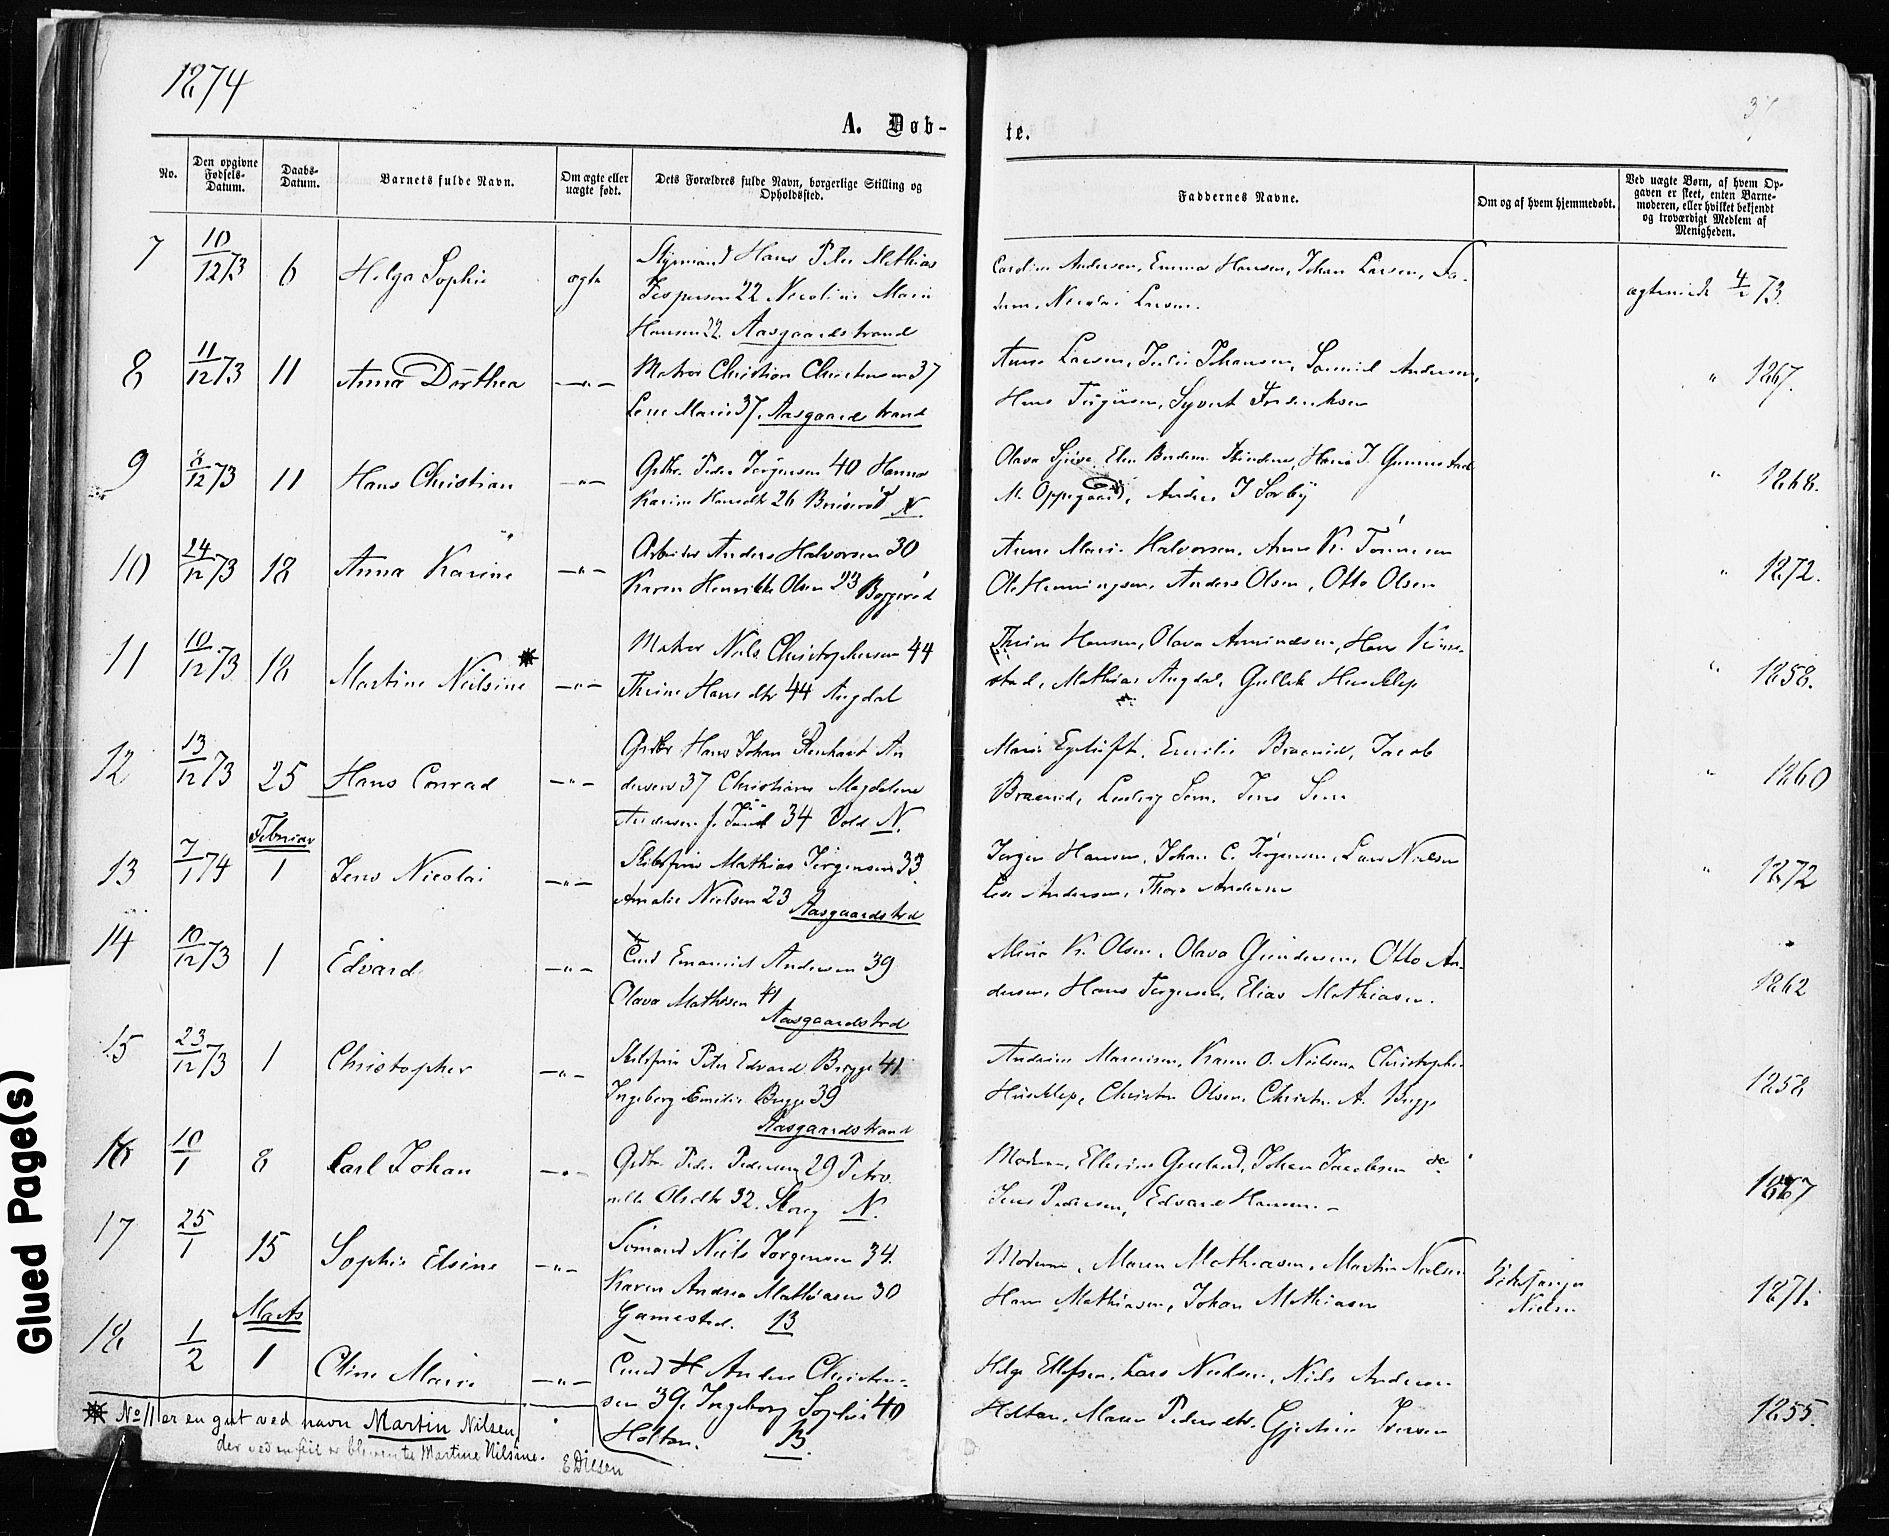 1874
37
A. Døb-
te.
No.
Den opgivne
Fødsels-
Datum.
Daabs-
Datum.
Barnets fulde Navn.
Om ægte eller
uægte født.
Dets Forældres fulde Navn, borgerlige Stilling og
Opholdssted.
Faddernes Navne.
Om og af hvem hjemmedøbt.
Ved uægte Børn, af hvem Op-
gaven er skeet, enten Barne-
moderen, eller hvilket bekjendt
og troværdigt Medlem af
Menigheden.
7 10/12 73 6 Helga Sophie ægte
Styrmand Hans Peter Mathias
Jespersen 22 Nicoline Marie
Hansen 22. Aasgaardstrand
Caroline Andersen, Emma Hansen, Johan Larsen, Fa-
deren, Nicolai Larsen.
ægteviede 4/2 73.
8 11/12 73 11 Anna Dorthea —"—
Matros Christian Christensen 37
Lene Marie 37. Aasgaardstrand
Anne Larsen, Julie Johansen, Samuel Andersen,
Hans Jørgensen, Syvert Frederiksen
" 1867.
9 8/12 73 11 Hans Christian —"—
Gdbr. Peder Jørgensen 40 Hanna
Karine Hansdtr 26 N.
Olava
M. Oppegaard, Anders J Sørby
" 1868.
10 24/12 73 18 Anna Karine —"—
Arbeider Anders Halvorsen 30
Karen Henrikke Olsen 23 Byggerød
Anne Marie Halvorsen, Anne K. Tønnesen
Ole Henningsen, Anders Olsen, Otto Olsen
" 1872.
11 10/12 73 18 Martine Neilsine * —"—
Matros Nils Christophersen 44
Thrine Hansdtr 44 Augdal
Thrine Hansen, Olava Amundsen, Hans
stad, Mathias Augdal, Gullik Hesklep
" 1858.
12 13/12 73 25 Hans Conrad —"—
Gdbr Hans Johan Renhart An
dersen 37 Christiane Magdalene
Andersen f. 34 Vold N.
Maria Emilie Jacob
Ludvig Sem, Jens Sem
" 1860
Februar
13 7/1 74 1 Jens Nicolai —"—
Skibsfører Mathias Jørgensen 33
Amalie Nielsen 23 Aasgaardstrd
Jørgen Hansen, Johan C. Jørgensen, Lars Nielsen
Andersen, Thora Andersen
" 1872
14 10/12 73 1 Edvard —"—
Emanuel Andersen 39
Olava Mathisen 41
Aasgaardstrd
K. Olsen, Olava Gundersen, Otto An-
dersen, Hans Jørgensen, Elias Mathiasen.
" 1862
15 23/12 73 1 Christopher —"—
Skibsfører Peter Edvard Brygge 41
Ingeborg Emilie Brygge 39
Aasgaardstrand
Karen O. Neilsen, Christopher
Huseklep, Christen Olsen, Christen A. Brygge
1858
16 10/1 8 Carl Johan —"—
Gdbr. Peder Pedersen 29 Petro
nelle Olsdtr 32. N.
Moderen, Johan Jacobsen
Jens Pedersen, Edvard Hansen. –
1867
17 25/1 15 Sophie Elsine —"—
Sømand Niels Jørgensen 34.
Karen Andrea Mathiasen 30
Gamested. B
Moderen, Maren Mathiasen, Martin Nielsen
Hans Mathiasen, Johan Mathiasen
Kirkesanger
Nielsen
1871.
Marts
18 1/2 1 Oline Marie —"—
Anders Christen-
sen 39, Ingeborg Sophie 40
Holtan. B.
Helge Ellefsen, Lars Neilsen, Niels Andersen
Holtan, Maren Pedersdtr, Gjertrine Iversen
1855.
* No 11 er en gut ved navn Martin Nilsen,
der ved en feil er bleven til Martine Nilsine.
E Dilsen
Glued Page(s)